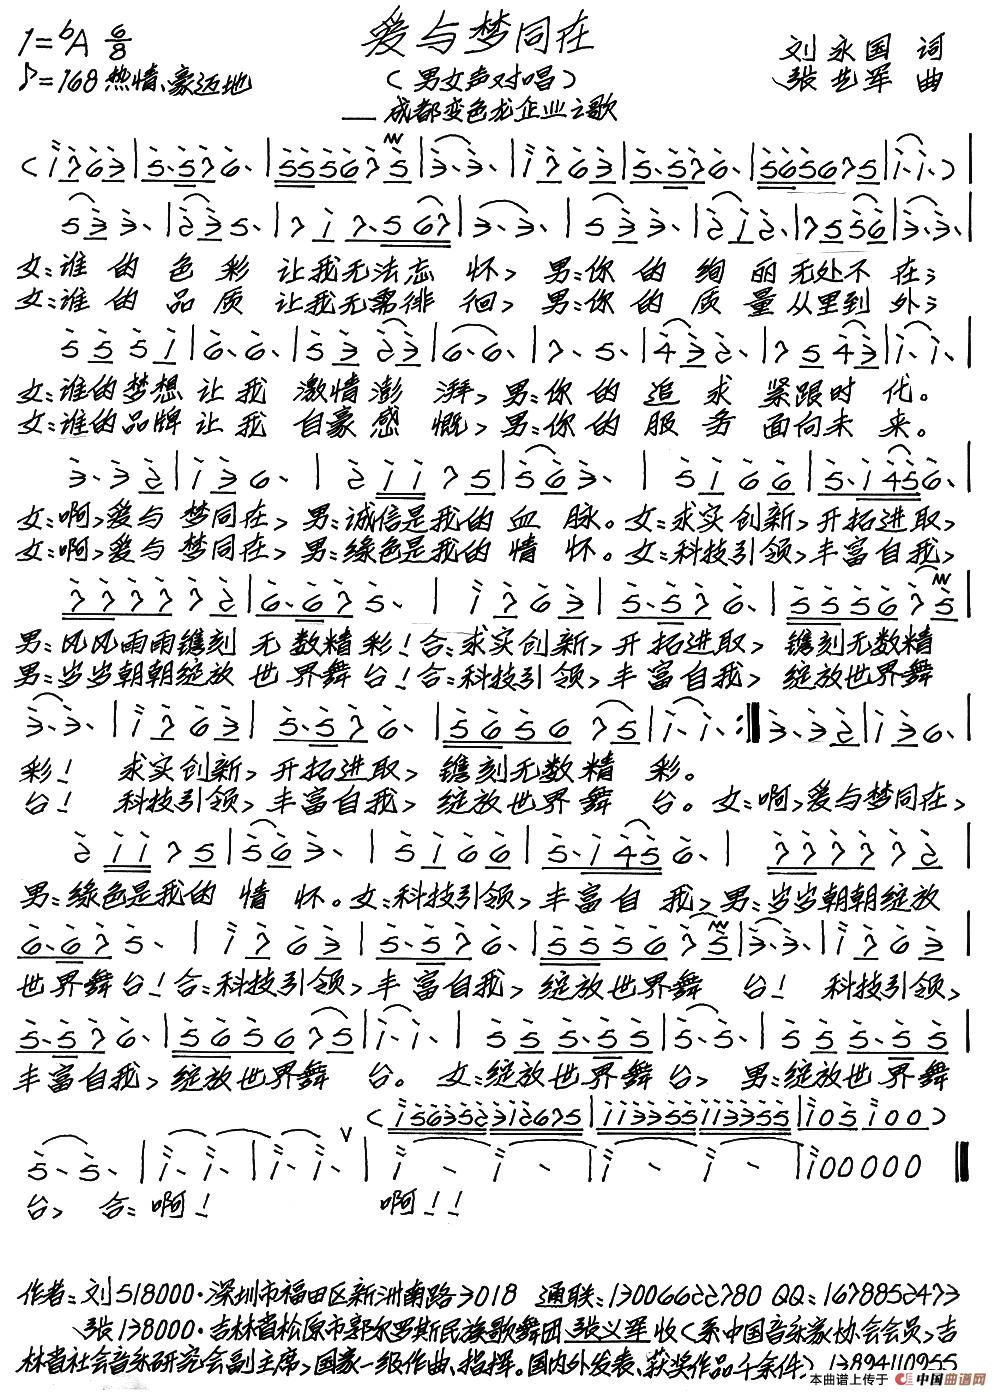 爱与梦同在
1=ᵇA 6/8
♪=168 热情、豪迈地
（男女声对唱）
——成都变色龙企业之歌
刘永国 词
张艺军 曲
女：谁的色彩让我无法忘怀，男：你的绚丽无处不在；
女：谁的品质让我无需徘徊，男：你的质量从里到外；
女：谁的梦想让我激情澎湃，男：你的追求紧跟时代。
女：谁的品牌让我自豪感慨，男：你的服务面向未来。
女：啊，爱与梦同在，男：诚信是我的血脉。女：求实创新，开拓进取，
女：啊，爱与梦同在，男：缘色是我的情怀。女：科技引领，丰富自我，
男：风风雨雨镌刻无数精彩！合：求实创新，开拓进取，镌刻无数精
男：岁岁朝朝绽放世界舞台！合：科技引领，丰富自我，绽放世界舞
彩！求实创新，开拓进取，镌刻无数精彩。
台！科技引领，丰富自我，绽放世界舞台。女：啊，爱与梦同在，
男：缘色是我的情怀。女：科技引领，丰富自我，男：岁岁朝朝绽放
世界舞台！合：科技引领，丰富自我，绽放世界舞台！科技引领，
丰富自我，绽放世界舞台。女：绽放世界舞台，男：绽放世界舞
台，合：啊！啊！！
作者：刘518000·深圳市福田区新洲南路3018 通联：13006622780 QQ：1678852473
张138000·吉林省松原市郭尔罗斯民族歌舞团 张义军 收（系中国音乐家协会会员，吉
林省社会音乐研究会副主席，国家一级作曲、指挥。国内外发表、获奖作品千余件）13894110955
本曲谱上传于 中国曲谱网